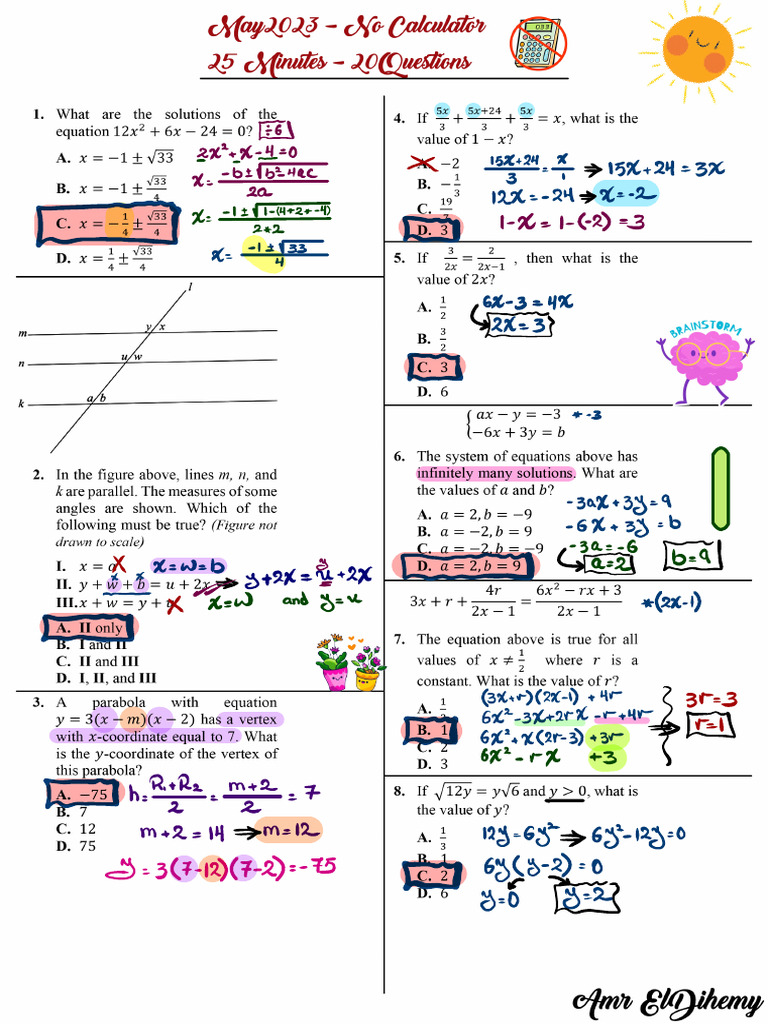 May2023 - No Calculator
25 Minutes - 20Questions
1. What are the solutions of the
equation 12x² + 6x − 24 = 0? ÷6
A. x = −1 ± √33
B. x = −1 ± √33/4
C. x = −1/4 ± √33/4
D. x = 1/4 ± √33/4
2x² + x - 4 = 0
x = (-b ± √(b² - 4ac))/2a
x = (-1 ± √(1-(4*2*-4)))/2*2
x = (-1 ± √33)/4
l
m
y x
n
u w
k
a b
2. In the figure above, lines m, n, and
k are parallel. The measures of some
angles are shown. Which of the
following must be true? (Figure not
drawn to scale)
I. x = a x = w = b
II. y + w + b = u + 2x → y + 2x = u + 2x
x x y
III. x + w = y + x = w and y = u
A. II only
B. I and II
C. II and III
D. I, II, and III
3. A parabola with equation
y = 3(x − m)(x − 2) has a vertex
with x-coordinate equal to 7. What
is the y-coordinate of the vertex of
this parabola?
A. −75
B. 7
C. 12
D. 75
h = (R₁+R₂)/2 = (m+2)/2 = 7
m + 2 = 14 → m = 12
y = 3(7-12)(7-2) = -75
4. If 5x/3 + (5x+24)/3 + 5x/3 = x, what is the
value of 1 − x?
A. −2
B. −1/3
C. 19
D. 3
(15x+24)/3 = x/1 → 15x + 24 = 3x
12x = -24 → x = -2
1-x = 1-(-2) = 3
5. If 3/2x = 2/(2x−1) , then what is the
value of 2x?
A. 1/2
B. 3/2
C. 3
D. 6
6x - 3 = 4x
2x = 3
BRAINSTORM
ax − y = −3 * -3
−6x + 3y = b
6. The system of equations above has
infinitely many solutions. What are
the values of a and b?
A. a = 2, b = −9
B. a = −2, b = 9
C. a = −2, b = −9
D. a = 2, b = 9
-3ax + 3y = 9
-6x + 3y = b
-3a = -6
a = 2
b = 9
3x + r + 4r/(2x − 1) = (6x² − rx + 3)/(2x − 1) *(2x-1)
7. The equation above is true for all
values of x ≠ 1/2 where r is a
constant. What is the value of r?
A. 1
B. 1
C. 2
D. 3
(3x+r)(2x-1) + 4r
6x² - 3x + 2rx - r + 4r
6x² + x(2r-3) + 3r
6x² - rx + 3
3r = 3
r = 1
8. If √12y = y√6 and y > 0, what is
the value of y?
A. 1/3
B. 1
C. 2
D. 6
12y = 6y² → 6y² - 12y = 0
6y(y-2) = 0
y = 0 y = 2
Amr ElDihemy